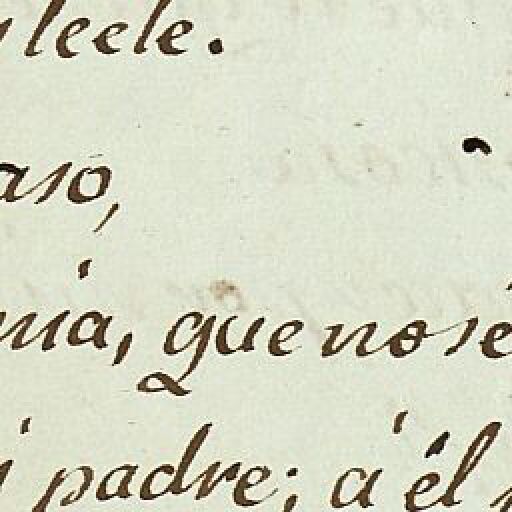 leele.
aso,
mia, que no sé
padre; á él